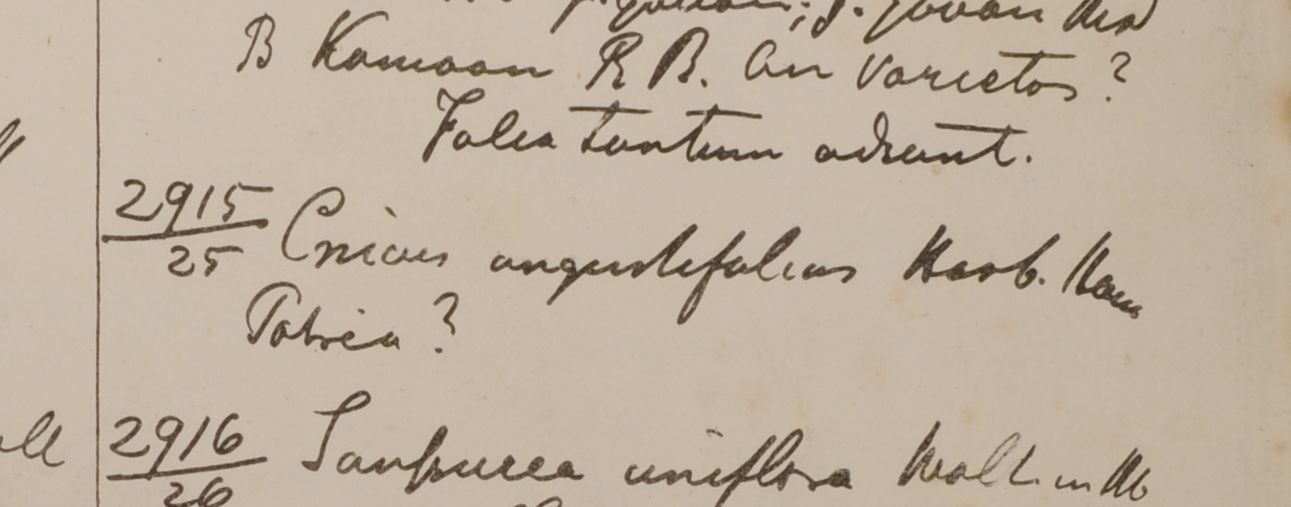 B Kamaon R B. an varietas?
Folia tantum adsunt.
2915
25 Cnicus angustifolius Herb. Ham
Patria?
2916
26 Saussurea uniflora Wall. in Hb